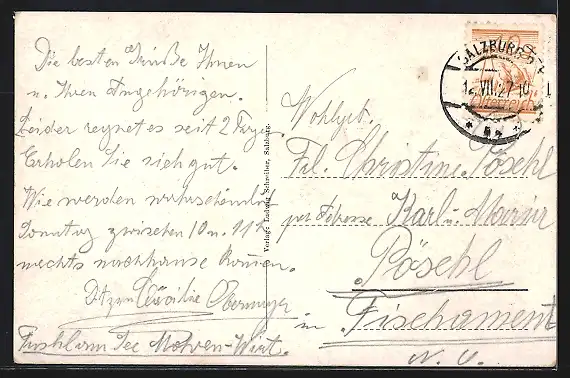 Die besten Grüße Ihnen
u. Ihren Angehörigen.
Leider regnet es seit 2 Tagen
Erholen Sie sich gut.
Wir werden wahrscheinlich
Sonntag zwischen 10 u. 11h
nechts nachhause kommen.
Cäcilie Obermayer
Fuschl am See Mohren-Wirt.
Verlag: Ludwig Schreiber, Salzburg.
SALZBURG
12.VII.27-10
Österreich
Wohlgeb.
Frl. Christine Pöschl
per Adresse Karl u. Maria
Pöschl
in Fischament
N. Ö.